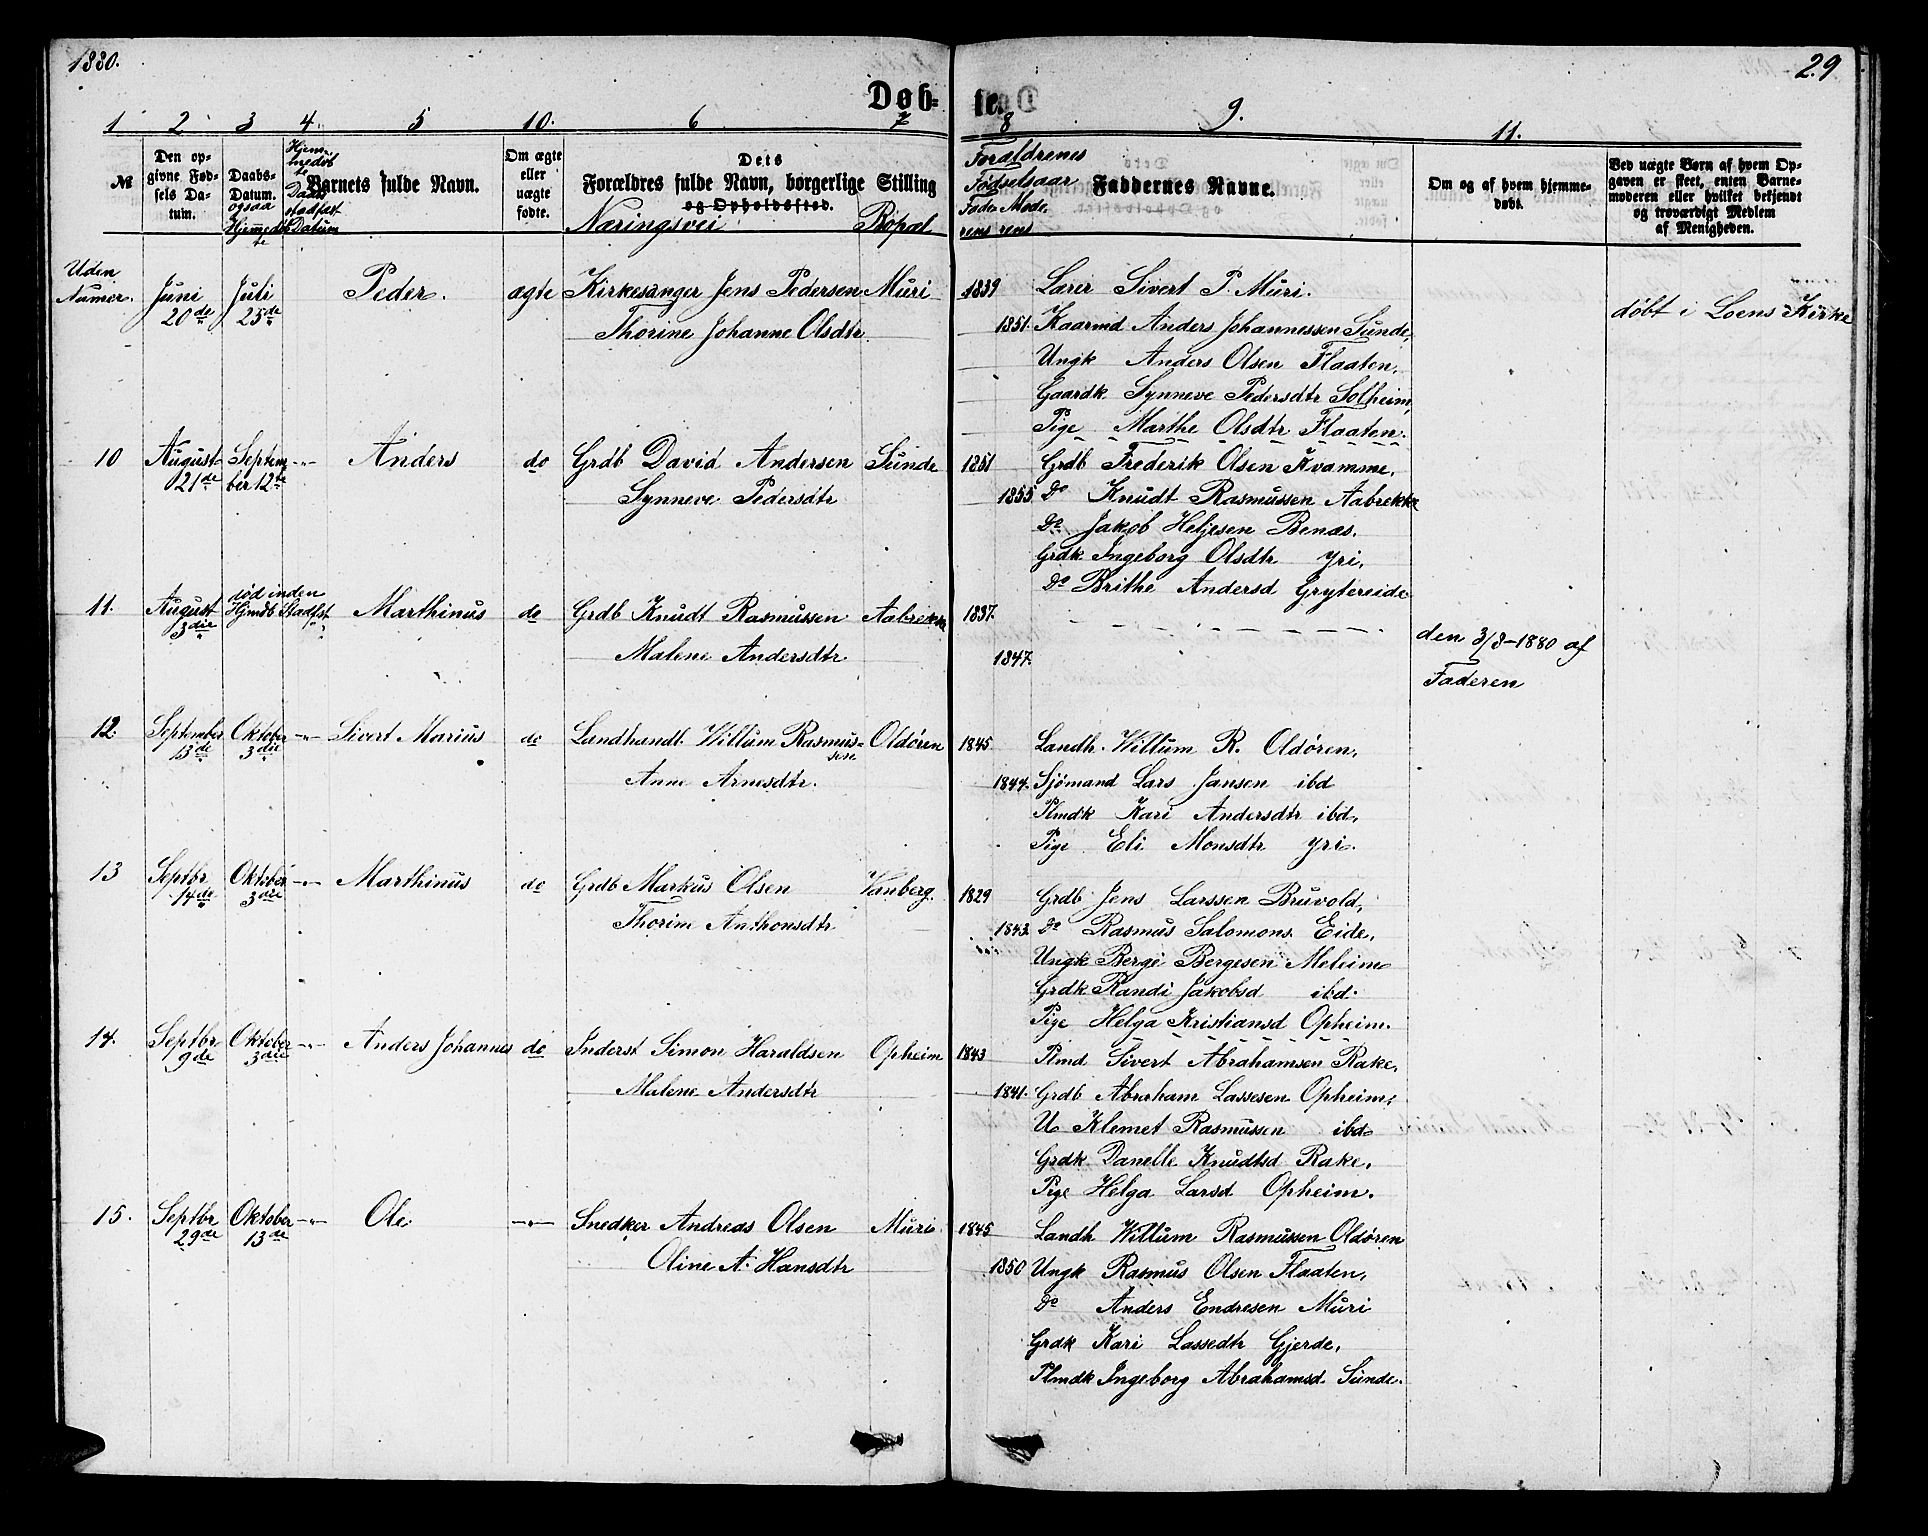 1880.
29
Døb-
te.
1 2 3 4. 5 10. 6 7 8 9. 11.
№
Den op-
givne Fød-
sels Da-
tum.
Daabs-
Datum.
ogsaa
Hjemmedøbte
Hjem-
medøbte
Daab
stadfæst
Datum
Barnets fulde Navn.
Om ægte
eller
uægte
fødte.
Dets
Forældres fulde Navn, borgerlige Stilling
og Opholdssted.
Næringsvei
Bopæl
Forældrenes
Fødselsaar
Faderens Moderens
Faddernes Navne.
Om og af hvem hjemme-
døbt.
Ved uægte Børn af hvem Op-
gaven er skeet, enten Barne-
moderen eller hvilket bekjendt
og troværdigt Medlem
af Menigheden.
Uden
Numer. Juni Juli Peder. ægte Kirkesanger Jens Pedersen Muri 1839 Lærer Sivert P. Muri.
20de 25de Thorine Johanne Olsdtr 1851. Kaarmd Anders Johannessen Sunde,
døbt i Loens Kirke
Ungk Anders Olsen Flaaten,
Gaardk Synneve Pedersdtr Solheim,
Pige Marthe Olsdtr Flaaten.
10 August Septem -"- Anders do Grdb David Andersen Sunde 1851 Grdb Frederik Olsen Kvamme,
21de ber 12te Synneve Pedersdtr 1855 Do Knudt Rasmussen Aabrekke
Do Jakob Heljesen Benæs.
Grdk Ingeborg Olsdtr Yri,
Do Brithe Andersd Grytereide
død inden
11. August Hjmdb Stadfst Marthinus do Grdb Knudt Rasmussen Aabrekke 1837.
3die
Malene Andersdtr 1847.
den 3/8-1880 af
Faderen
12. September Oktober -"- Sivert Marius do Landhandl. Willum Rasmus- Oldøren 1845 Landh. Willum R. Oldøren,
13de 3die sen
Anne Arnesdtr. 1844. Sjømand Lars Jansen ibd
Plmdk Kari Andersdtr ibd,
Pige Eli Monsdtr Yri.
13 Septbr Oktober -"- Marthinus do Grdb Markus Olsen Vanberg. 1829 Grdb Jens Larssen Bruvold,
14de 3die Thorine Anthonsdtr 1843. Do Rasmus Salomons. Eide,
Ungk Berge Bergesen Meleim
Grdk Randi Jakobsd ibd.
Pige Helga Kristiansd Opheim.
14. Septbr Oktober -"- Anders Johannes do Inderst Simon Haraldsen Opheim 1843 Plmd Sivert Abrahamsen Rake,
9de 3die Malene Andersdtr 1841. Grdb Abraham Lassesen Opheim,
U Klemet Rasmussen ibd
Grdk Danelle Knudtsd Rake,
Pige Helga Larsd Opheim.
15. Septbr Oktober -"- Ole -"- Snedker Andreas Olsen Muri 1845 Landh Willum Rasmussen Oldøren
29de 13de Oline A. Hansdtr 1850 Ungk Rasmus Olsen Flaaten,
Do Anders Endresen Muri
Grdk Kari Lassedtr Gjerde,
Plmdk Ingeborg Abrahamsd. Sunde.